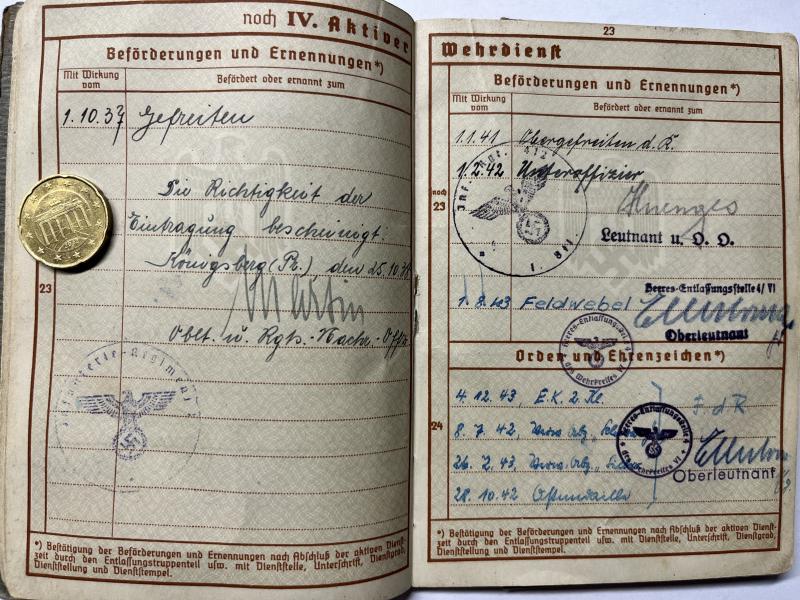 noch IV. Aktiver
Beförderungen und Ernennungen*)
Mit Wirkung vom
Befördert oder ernannt zum
1.10.37 Gefreiten
Die Richtigkeit der
Eintragung bescheinigt:
Königsberg (Pr.) den 25.10.
Martin
Oblt. u. Rgts.-Nachr.-Offz.
23
Infanterie-Regiment
*) Bestätigung der Beförderungen und Ernennungen nach Abschluß der aktiven Dienst-
zeit durch den Entlassungstruppenteil usw. mit Dienststelle, Unterschrift, Dienstgrad,
Dienststellung und Dienststempel.
23
Wehrdienst
Beförderungen und Ernennungen*)
Mit Wirkung vom
Befördert oder ernannt zum
1.1.41 Obergefreiten d. R.
1.2.42 Unteroffizier
noch
23
Leutnant u. O. O.
Heeres-Entlassungsstelle 4/VI
1.8.43 Feldwebel
Oberleutnant
Orden und Ehrenzeichen*)
4.12.43, E.K. 2. Kl.
FdR
8.7.42, Verw. Abz.
24
26.2.43, Verw. Abz.
Oberleutnant
28.10.42 Ostmedaille
*) Bestätigung der Beförderungen und Ernennungen nach Abschluß der aktiven Dienst-
zeit durch den Entlassungstruppenteil usw. mit Dienststelle, Unterschrift, Dienstgrad,
Dienststellung und Dienststempel.